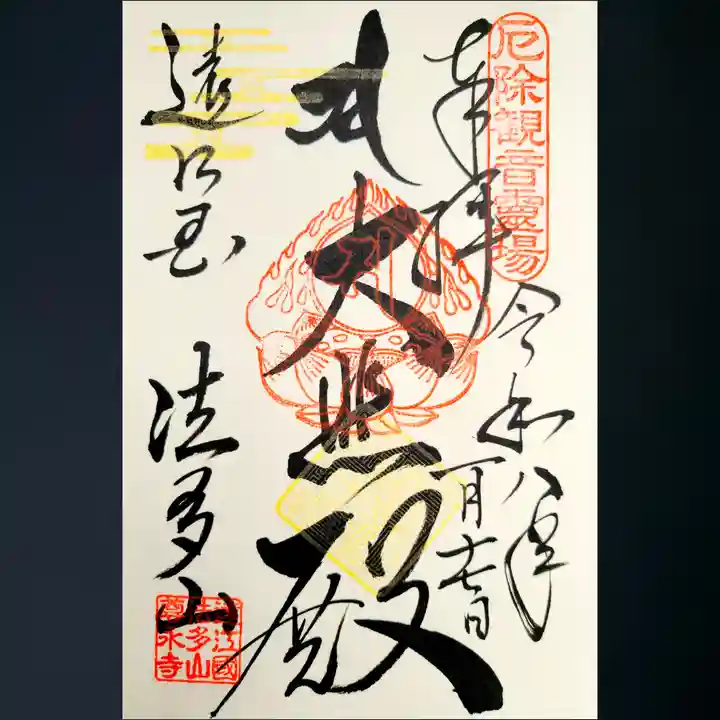 厄除観音靈場
奉拝
令和八年
一月十七日
大悲殿
遠江国
法多山
遠江國
法多山
尊永寺